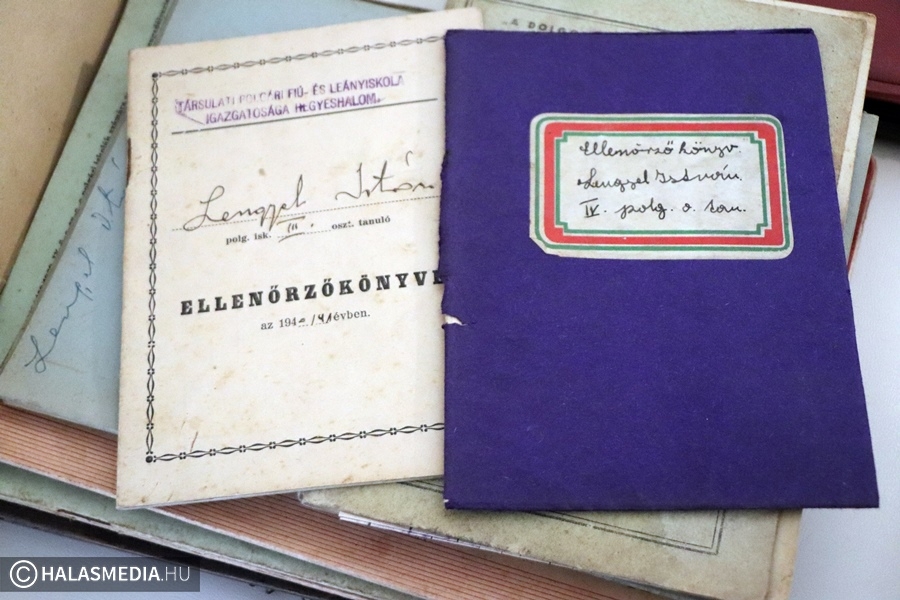 A POLGÁ
TÁRSULATI POLGÁRI FIÚ- ÉS LEÁNYISKOLA
IGAZGATÓSÁGA HEGYESHALOM.
Lengyel István
polg. isk. III. oszt. tanuló
ELLENŐRZŐKÖNYVE
az 1940/41 évben.
Ellenőrző könyv.
Lengyel István.
IV. polg. o. tan.
Lengyel Ist
© HALASMEDIA.HU